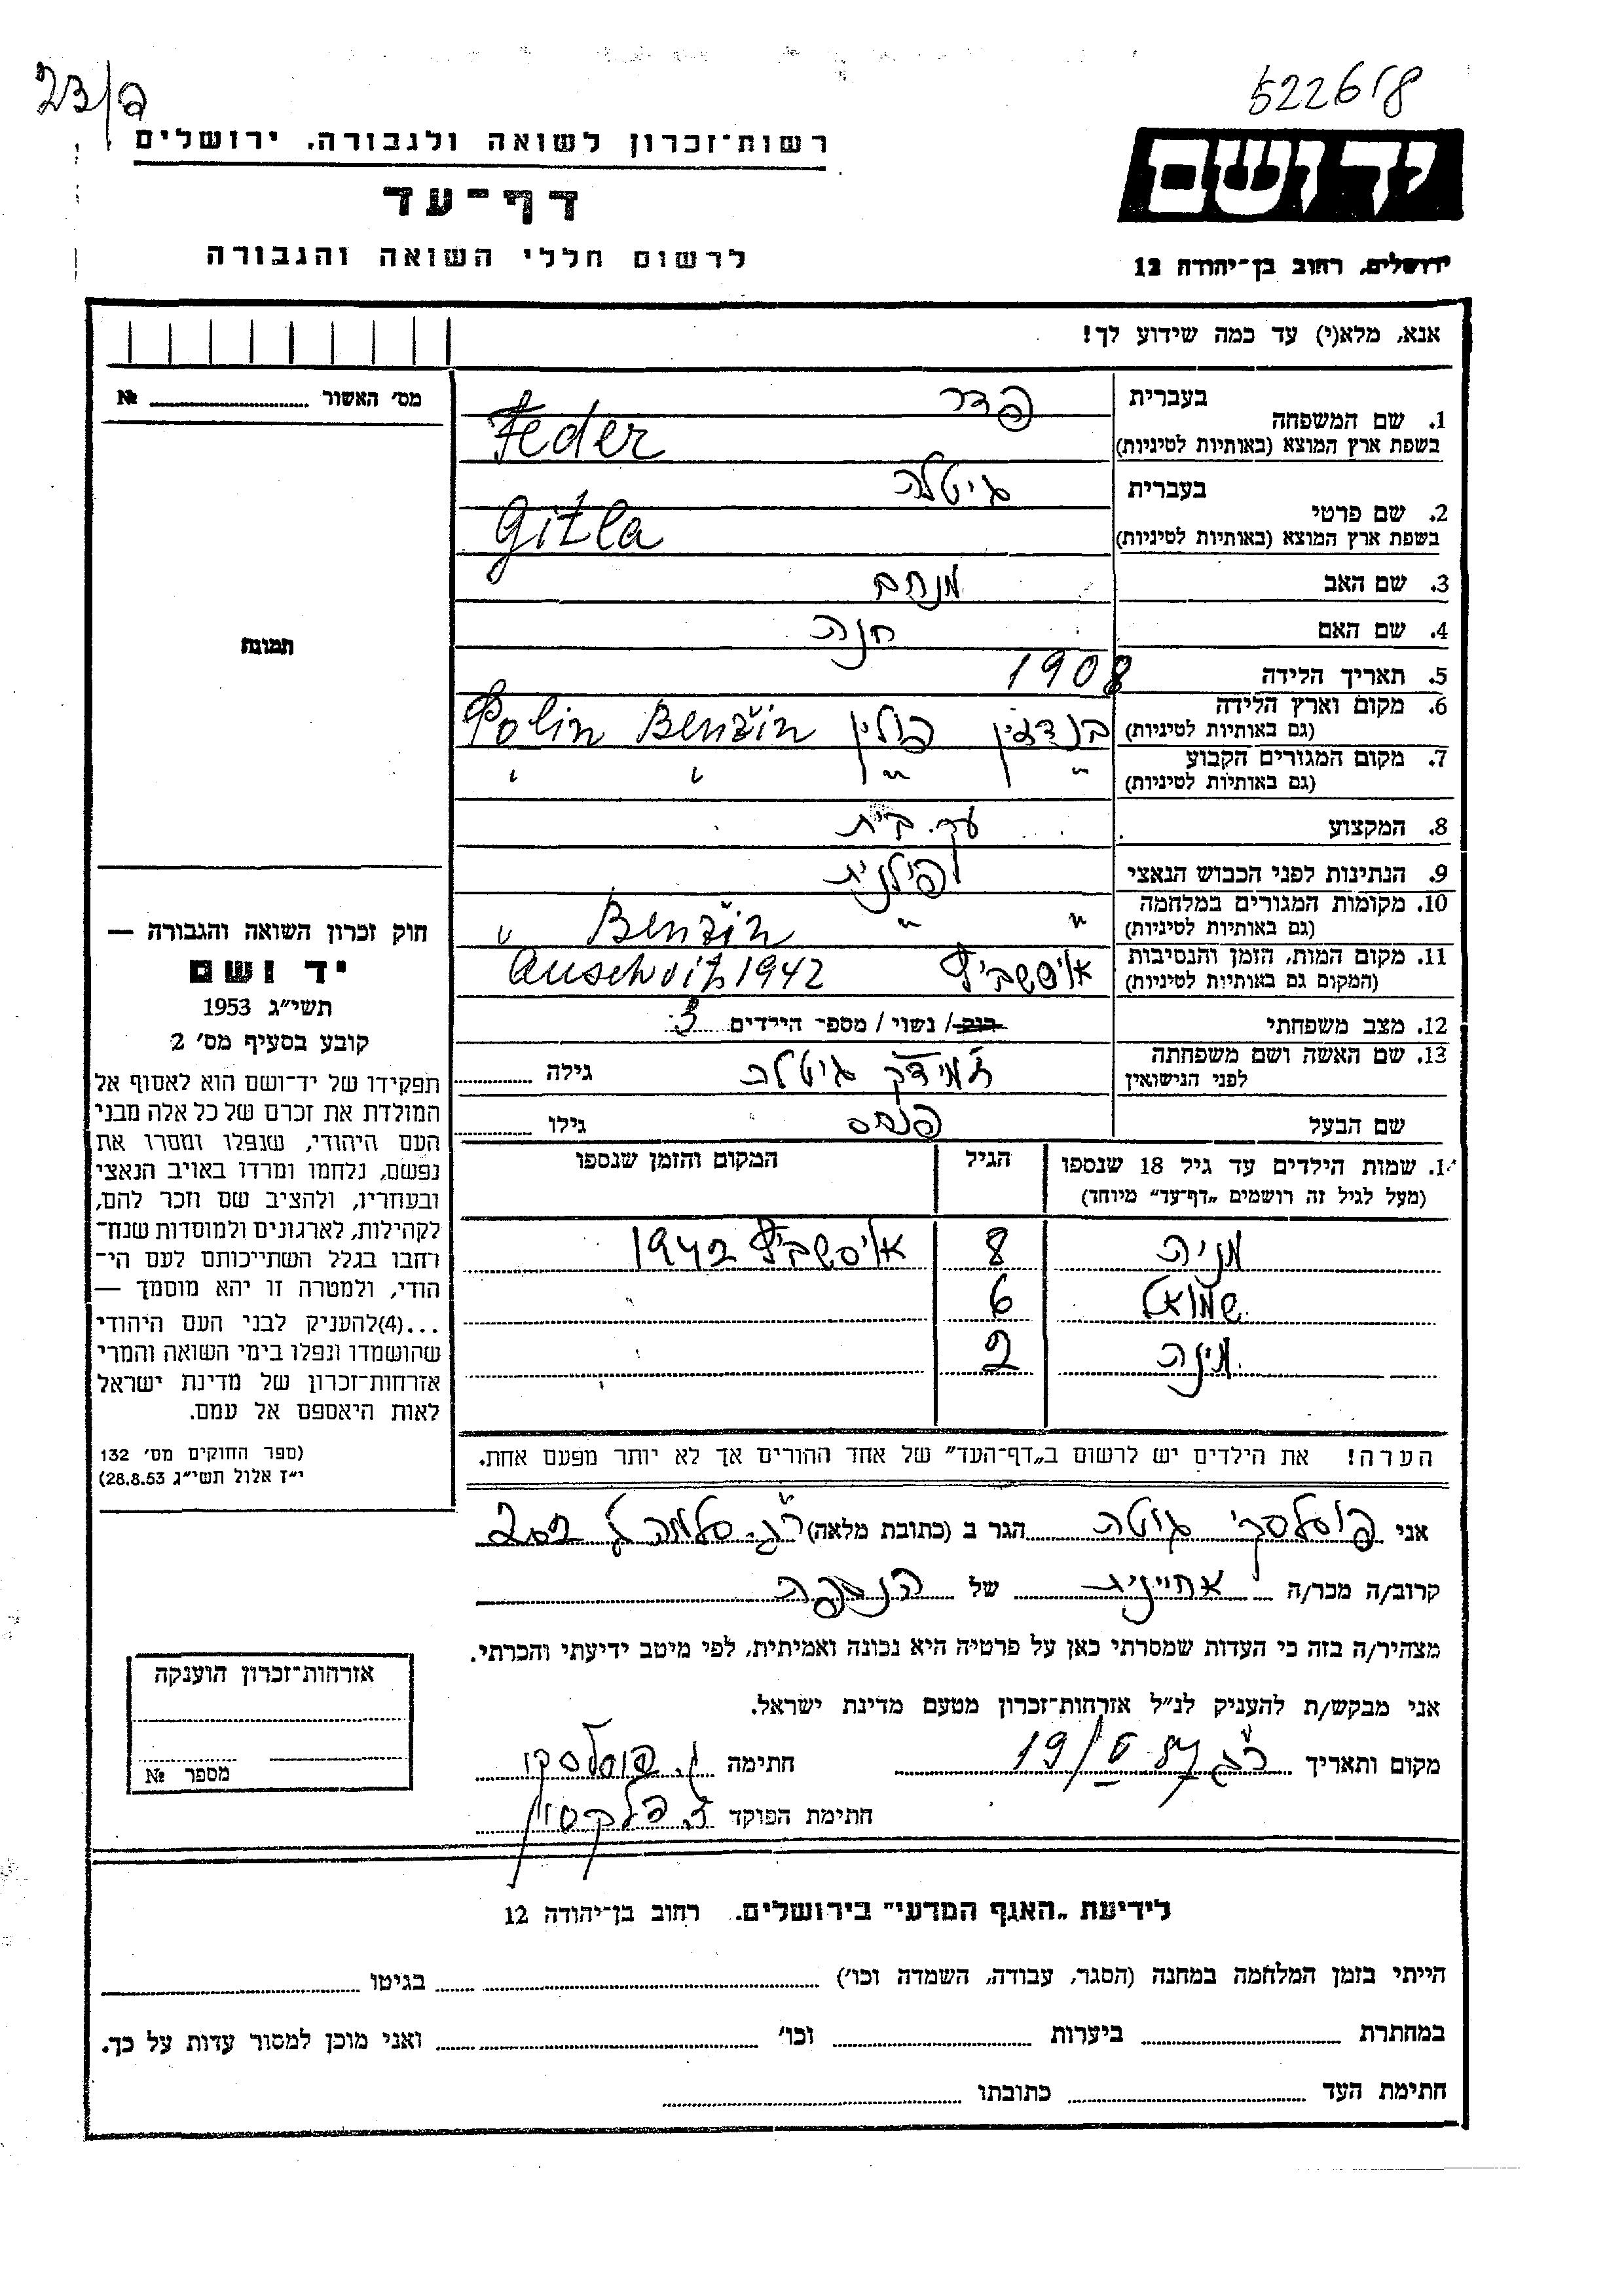 23/פ
522618
רשות־זכרון לשואה ולגבורה, ירושלים
יד ושם
דף־עד
לרשום חללי השואה והגבורה
ירושלים, רחוב בן־יהודה 12
אנא, מלא(י) עד כמה שידוע לך!
מס׳ האשור № 
1. שם המשפחה בעברית פדר
בשפת ארץ המוצא (באותיות לטיניות) Feder
2. שם פרטי בעברית גיטלה
בשפת ארץ המוצא (באותיות לטיניות) Gitla
3. שם האב מנחם
4. שם האם חנה
תמונה
5. תאריך הלידה 1908
6. מקום וארץ הלידה (גם באותיות לטיניות) בנדז׳ין פולין Benžin Polin
7. מקום המגורים הקבוע (גם באותיות לטיניות) " " " "
8. המקצוע עק. בית
9. הנתינות לפני הכבוש הנאצי פולנית
10. מקומות המגורים במלחמה (גם באותיות לטיניות) " " Benžin "
11. מקום המות, הזמן והנסיבות (המקום גם באותיות לטיניות) אושביץ Auschvitz 1942
12. מצב משפחתי רווק / נשוי / מספר הילדים 3
13. שם האשה ושם משפחתה לפני הנישואין גיטלה גילה
שם הבעל פנחס גילו
14. שמות הילדים עד גיל 18 שנספו הגיל המקום והזמן שנספו
(מעל לגיל זה רושמים „דף־עד” מיוחד)
מניה 8 אושביץ 1942
שמואל 6
מינה 2
הערה! את הילדים יש לרשום ב„דף־העד” של אחד ההורים אך לא יותר מפעם אחת.
חוק זכרון השואה והגבורה —
יד ושם
תשי״ג 1953
קובע בסעיף מס׳ 2
תפקידו של יד־ושם הוא לאסוף אל
המולדת את זכרם של כל אלה מבני
העם היהודי, שנפלו ומסרו את
נפשם, נלחמו ומרדו באויב הנאצי
ובעוזריו, ולהציב שם וזכר להם,
לקהילות, לארגונים ולמוסדות שנח־
רבו בגלל השתייכותם לעם הי־
הודי, ולמטרה זו יהא מוסמך —
...(4)להעניק לבני העם היהודי
שהושמדו ונפלו בימי השואה והמרי
אזרחות־זכרון של מדינת ישראל
לאות היאספם אל עמם.
(ספר החוקים מס׳ 132
י״ז אלול תשי״ג 28.8.53)
אני גוטה הגר ב (כתובת מלאה) ר״ג
קרוב/ה מכר/ה אחיינית של הנספה
מצהיר/ה בזה כי העדות שמסרתי כאן על פרטיה היא נכונה ואמיתית, לפי מיטב ידיעתי והכרתי.
אני מבקש/ת להעניק לנ״ל אזרחות־זכרון מטעם מדינת ישראל.
מקום ותאריך ר״ג חתימה
חתימת הפוקד
אזרחות־זכרון הוענקה
מספר №
לידיעת „האגף המדעי” בירושלים, רחוב בן־יהודה 12
הייתי בזמן המלחמה במחנה (הסגר, עבודה, השמדה וכו׳) בגיטו
במחתרת ביערות וכו׳ ואני מוכן למסור עדות על כך.
חתימת העד כתובתו